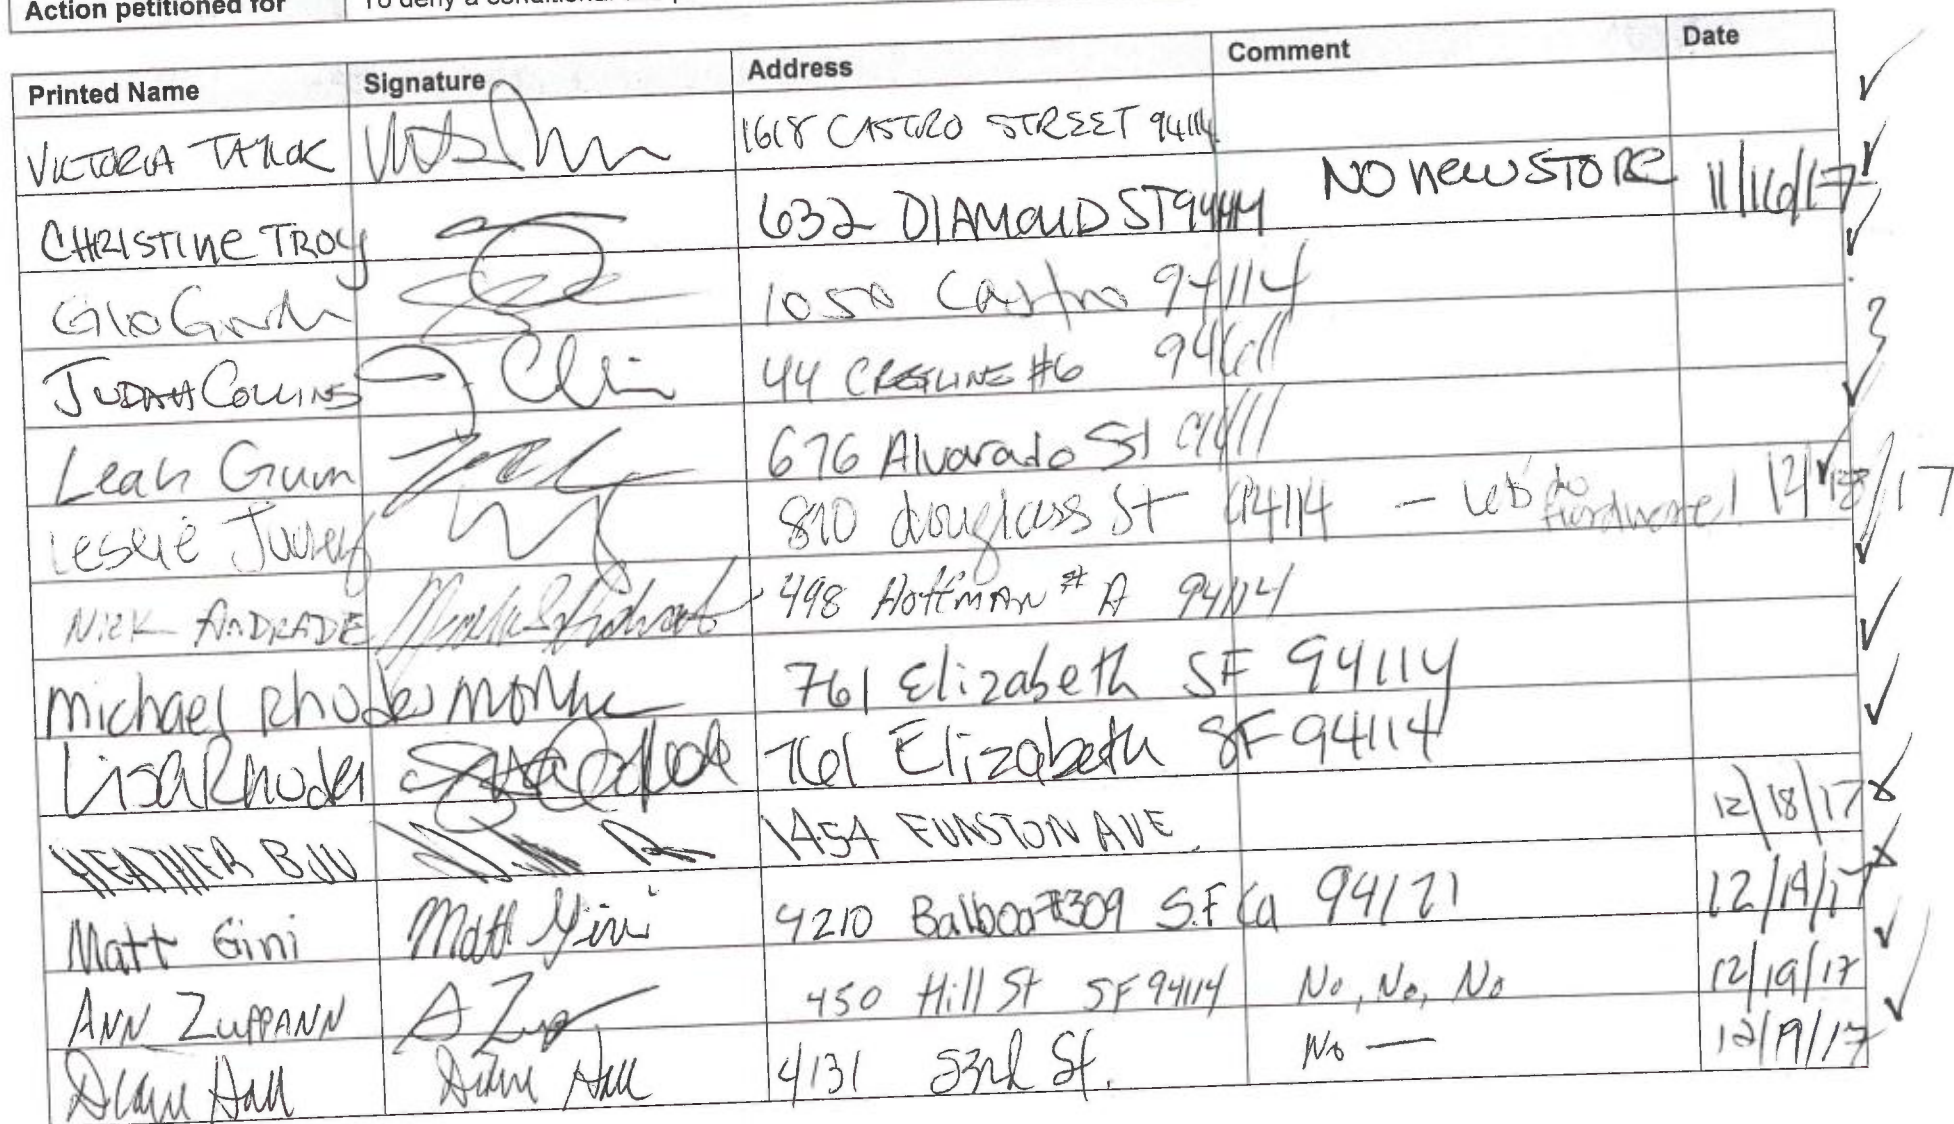 Action petitioned for
Printed Name Signature Address Comment Date
VICTORIA TAYLOR 1618 CASTRO STREET 94114
CHRISTINE TROY 632 DIAMOND ST 94114 NO new STORE 11/16/17
1050 Castro 94114
JUDAH COLLINS J. Collins 44 CRESTLINE #6
Leah Grum 676 Alvarado St
Leslie 810 douglass St 94114 - hardware! 12/18/17
NICK ANDRADE 498 Hoffman # A 94114
Michael Rhodes 761 Elizabeth SF 94114
Lisa Rhodes 761 Elizabeth SF 94114
HEATHER 1454 FUNSTON AVE. 12/18/17
Matt Gini Matt Gini 4210 Balboa #309 S.F Ca 94121 12/19/17
ANN ZUPPANN A Zup 450 Hill St SF 94114 No, No, No 12/19/17
Diane Hall Diane Hall 4131 No — 12/19/17